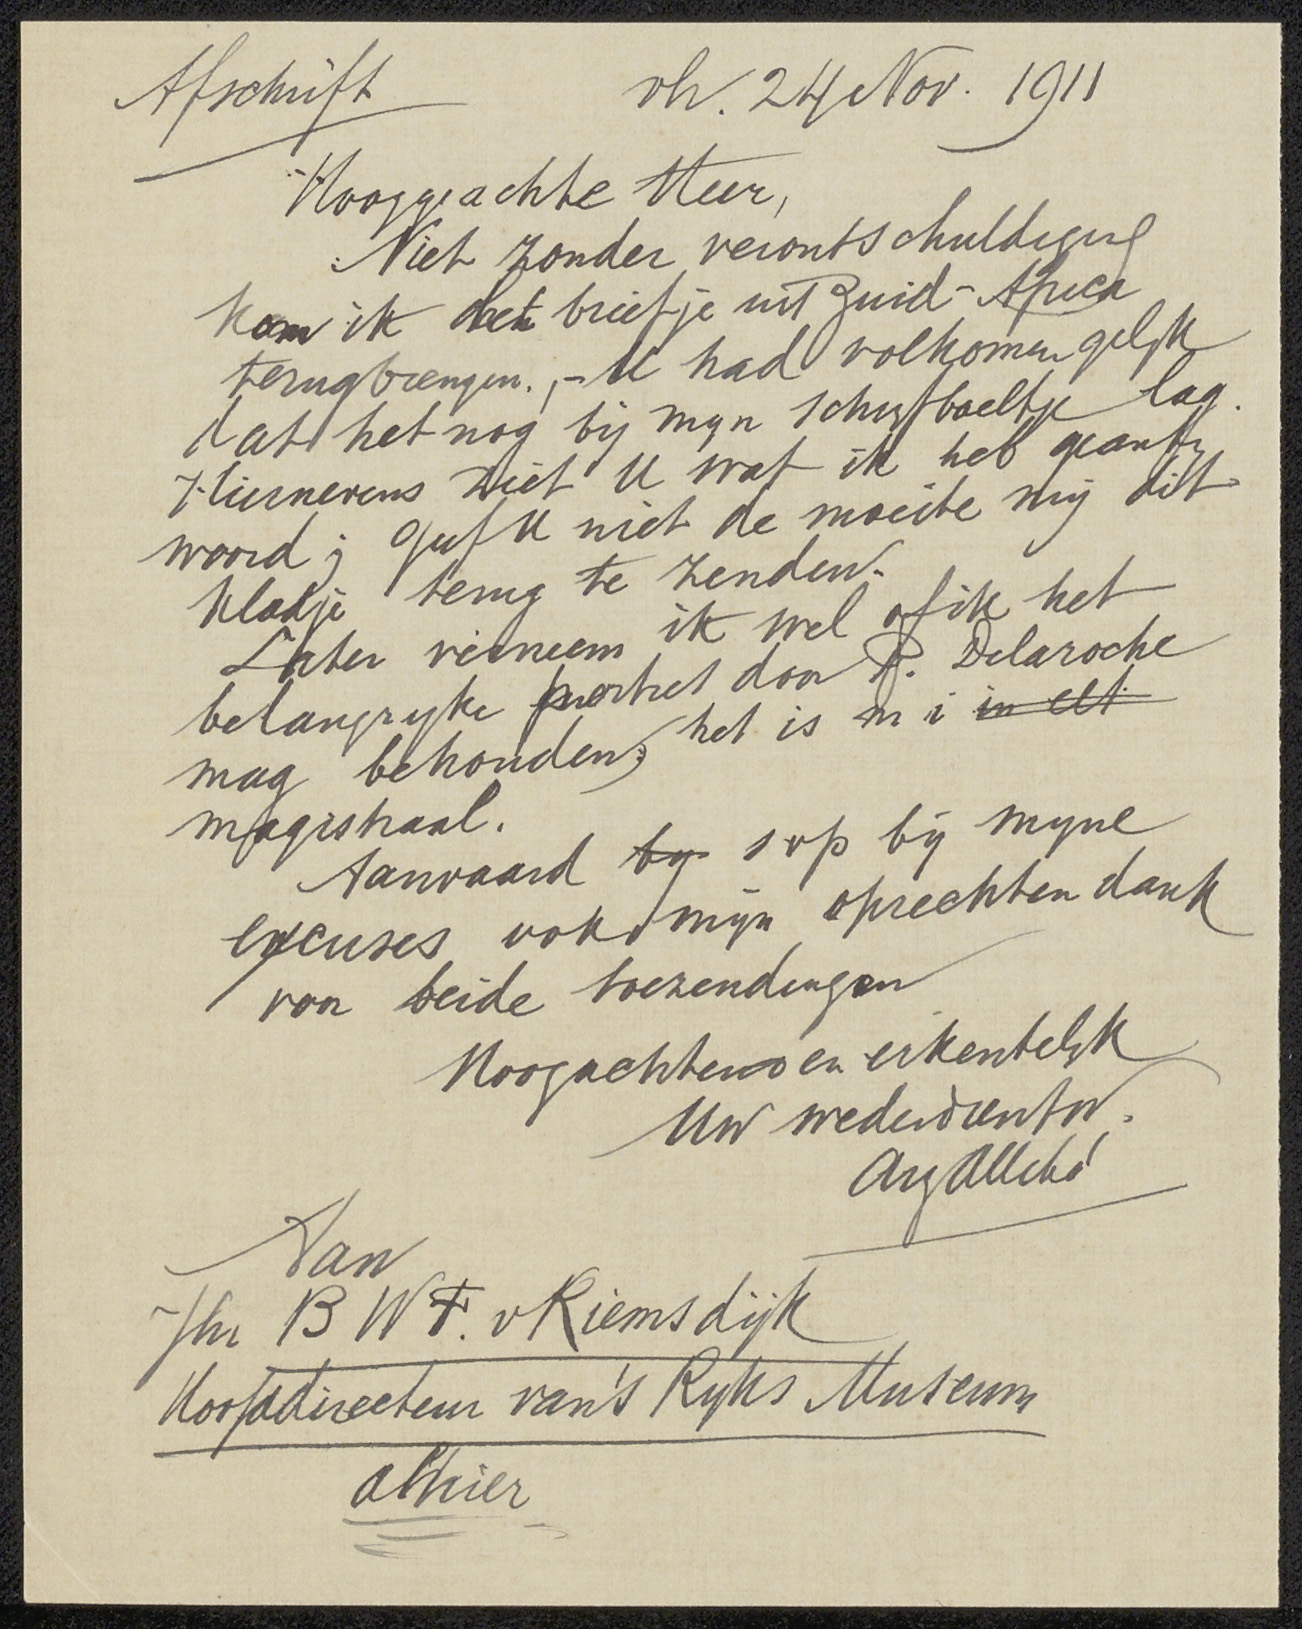 Afschrift vh. 24 Nov. 1911
Hooggeachte Heer,
Niet zonder verontschuldiging
kom ik het briefje uit Zuid-Africa
terugbrengen., – U had volkomen gelijk
dat het nog bij mijn schrijfboeltje lag.
Hiernevens ziet U wat ik heb geant-
woord; Geef U niet de moeite mij dit
kladje terug te zenden.
Later verneem ik wel of ik het
belangrijke portret door P. Delaroche
mag behouden; het is m i in elk
magistraal.
Aanvaard by svp bij myne
excuses ook mijn oprechten dank
voor beide toezendingen
Hoogachtend en erkentelijk
Uw wederdienstw.
Arg Allebé
Aan
Jhr B W F. v Riemsdijk
Hoofddirecteur van's Ryks Museum
alhier